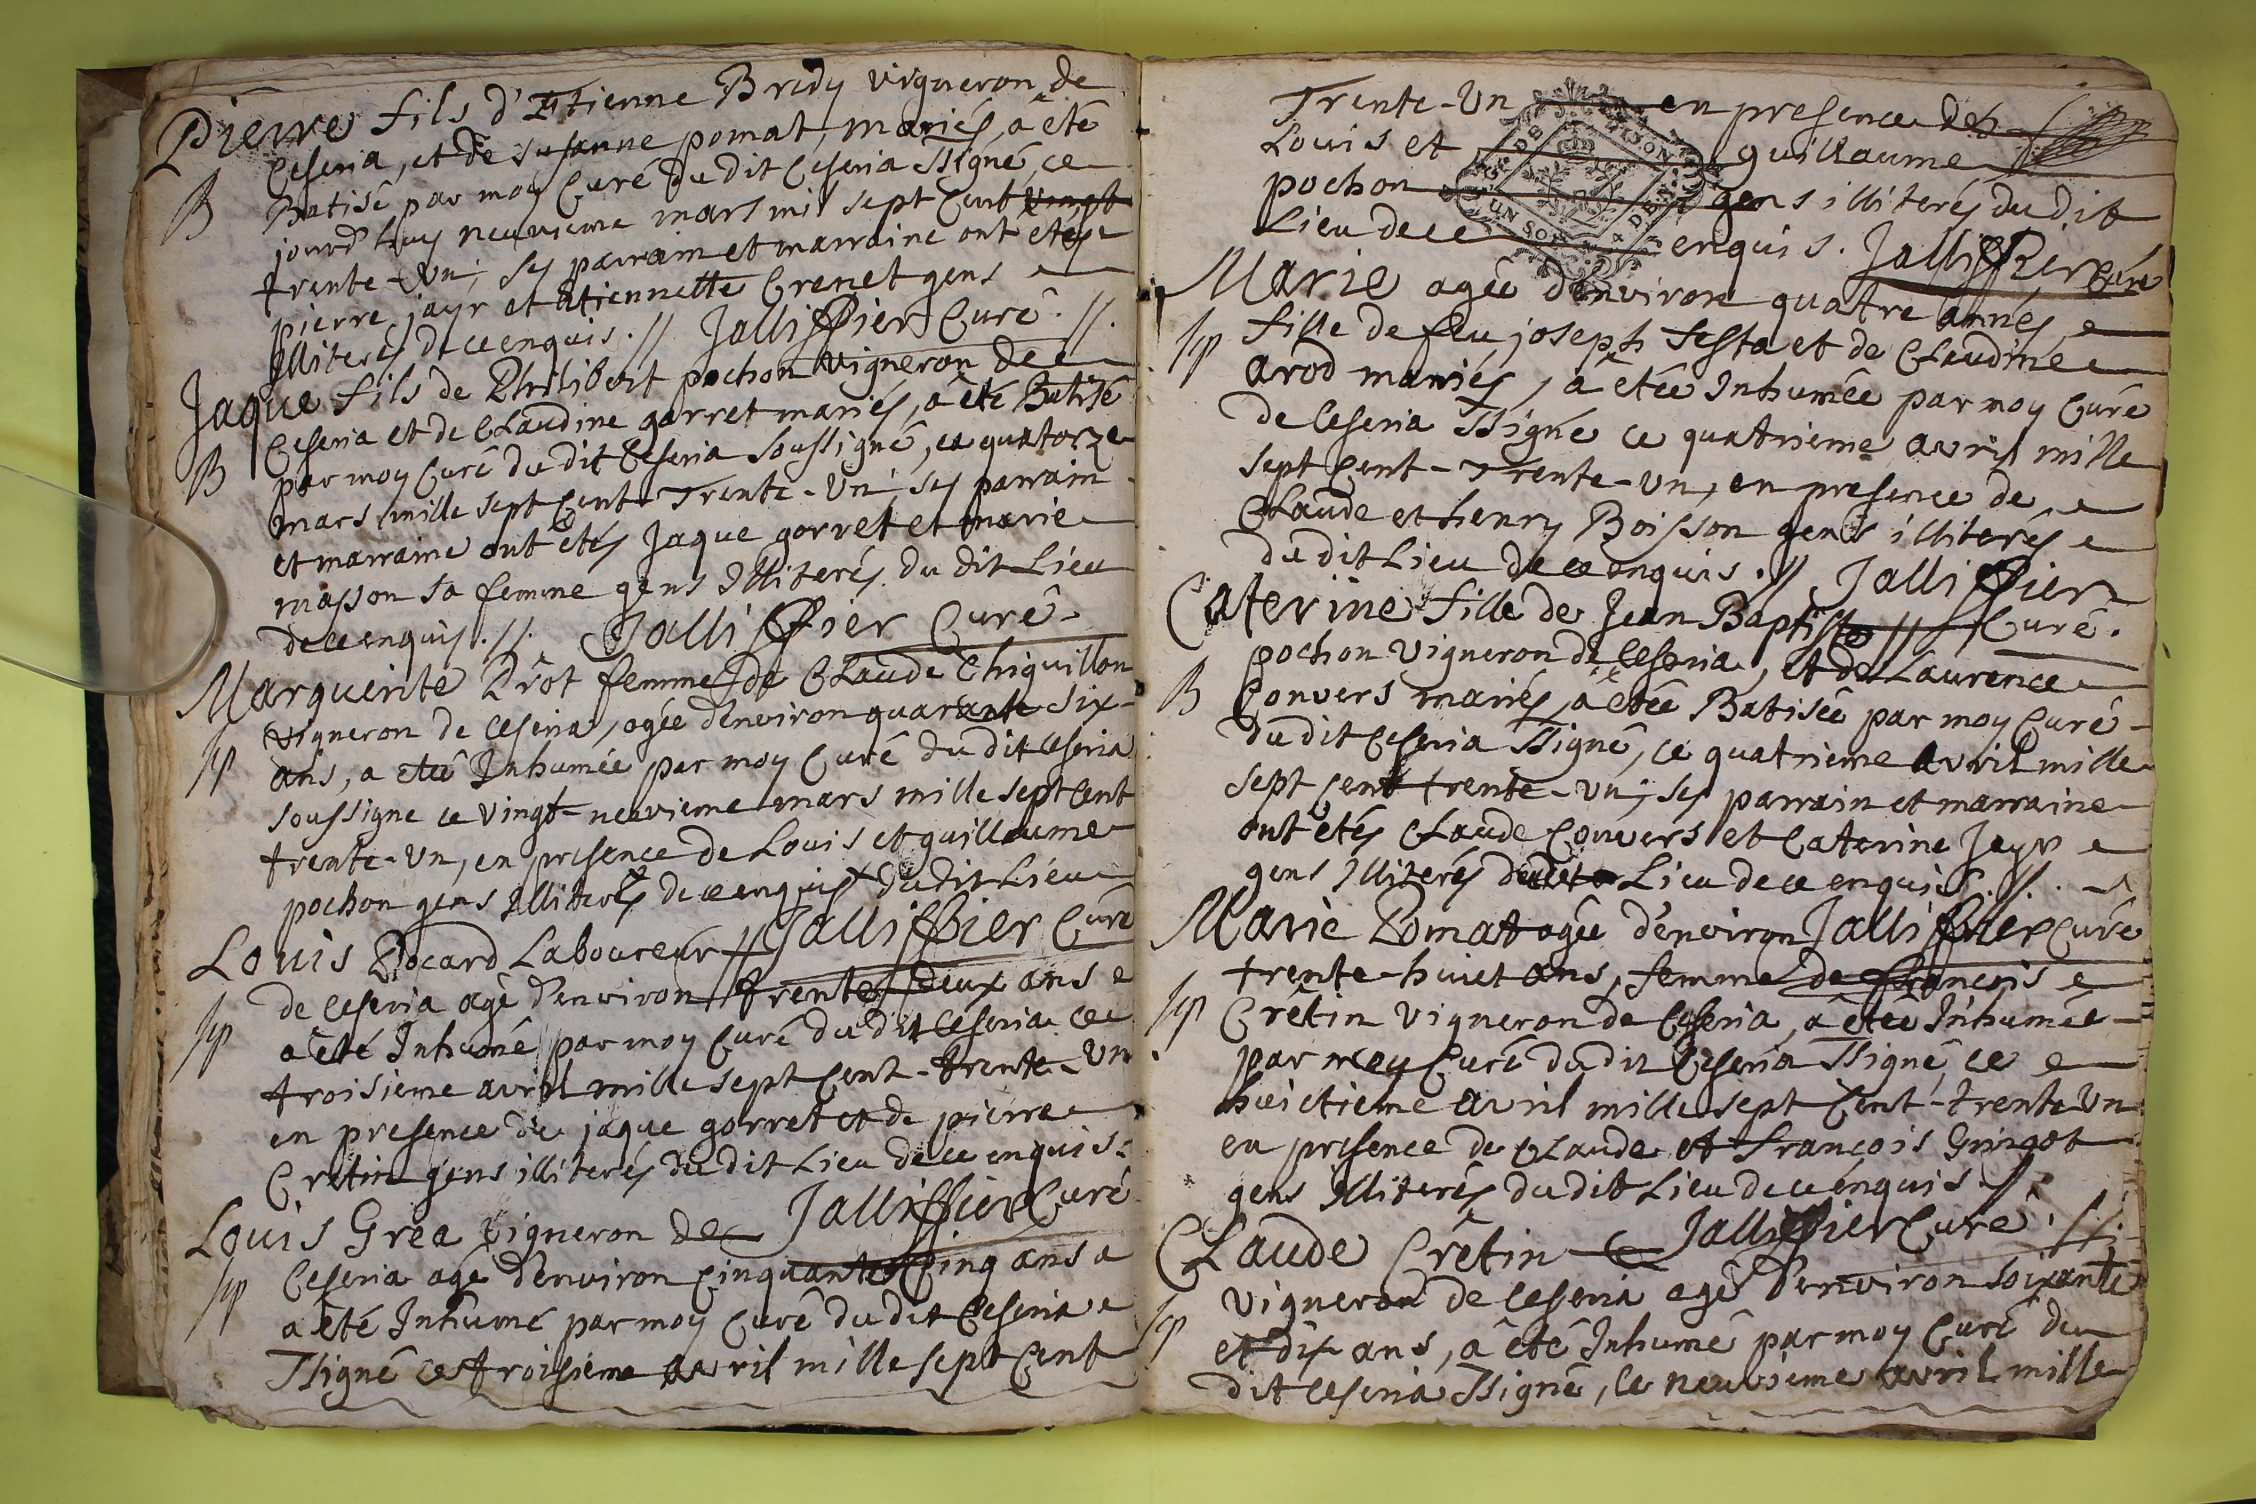 Pierre fils d'Etienne Bredy vigneron de
Ceseria, et de susanne pomat, mariés, a êté
B
Batisé par moy Curé du dit Ceseria ssigné, ce
jourd'huy neuvieme mars mil sept Cent vingt
trente-un, ses parrain et marraine ont etés
pierre jayr et etiennette Crenet gens
illiterés de ce enquis. // Jalliffier Curé. //.
Jaque fils de Philibert pochon vigneron de
Ceseria et de CLaudine garret mariés, a êté Batisé
B
par moy Curé du dit Ceseria soussigné, ce quatorze
mars mille sept Cent-Trente-un, ses parrain
et marraine ont êtés Jaque gorret et marie
masson sa femme gens Illiterés du dit Lieu
de ce enquis. //. Jalliffier Curé.
Marguerite Drôt femme de CLaude Chiquillon
vigneron de Ceseria, agée d'environ quarante six-
sp
ans, a etée Inhumée par moy Curé du dit Ceseria
soussigne ce vingt-neuvieme mars mille sept Cent
trente-un, en presence de Louis et guillaume
pochon gens Illiterés de ce enquis du dit Lieu
Louis Bocard Laboureur // Jalliffier Curé
de Ceseria agé d'environ trente deux ans
sp
a êté Inhumé par moy Curé du dit Ceseria ce
troisieme avril mille sept Cent-trente-un
en presence de jaque gorret et de pierre
Cretin gens illiterés du dit Lieu de ce enquis.
Louis Grea vigneron de Jalliffier Curé
sp
Ceseria agé d'environ Cinquante Cinq ans
a êté Inhumé par moy Curé du dit Ceseria
ssigné ce troisieme avril mille sept Cent
Trente-Un en presence des
Louis et guillaume
pochon gens illiterés du dit
Lieu de ce enquis. Jalliffier Curé
UN SOL
Marie agée d'environ quatre annés
sp
fille de feu joseph Testa et de CLaudine
arod mariés, a êtée Inhumée par moy Curé
de Ceseria ssigné ce quatrieme avril mille
sept Cent-Trente-un, en presence de
CLaude et henry Boisson gens illiterés
du dit Lieu de ce enquis. // Jalliffier
Caterine fille de Jean Baptiste // Curé.
pochon vigneron de Ceseria, et de Laurence
B
Convers mariés, a etée Batisée par moy Curé
du dit Ceseria ssigné, ce quatrieme avril mille
sept Cent trente-un, ses parrain et marraine
ont êtés CLaude Convers et Caterine Jayr
gens Illiterés du dit Lieu de ce enquis. //.
Marie Pomat agée d'environ Jalliffier Curé
trente-huict ans, femme de francois
sp
Crêtin vigneron de Ceseria, a êtée Inhumée
par moy Curé du dit Ceseria ssigné, ce
huictieme avril mille sept Cent-trente un
en presence de CLaude et François Gringot
gens Illiterés du dit Lieu de ce enquis. //.
CLaude Crêtin Jalliffier Curé. //.
vigneron de Ceseria agé d'environ soixante
sp
et dix ans, a êté Inhumé par moy Curé du
dit Ceseria ssigné, le neuvieme avril mille